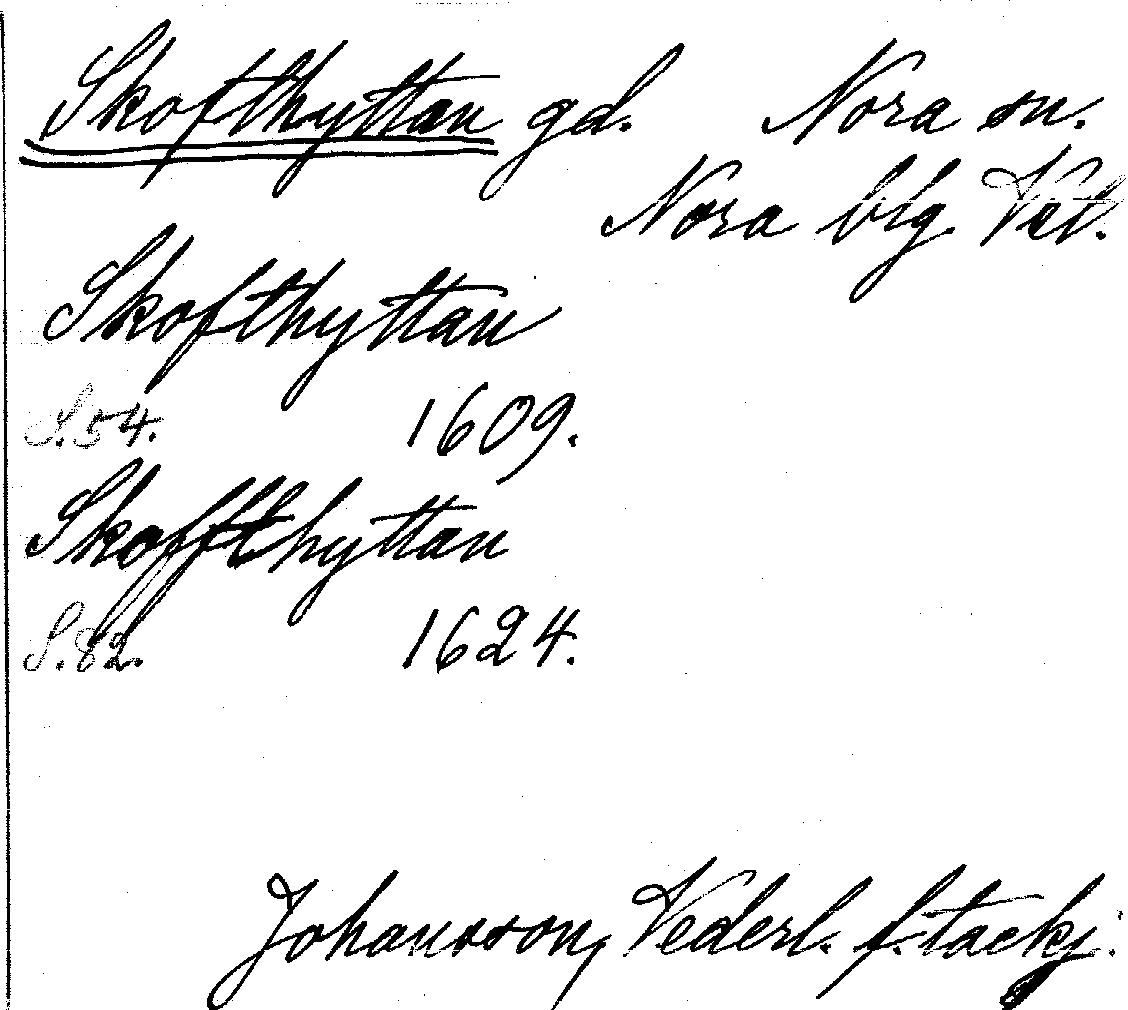 Skofthyttan gd. Nora sn.
Nora blg Vstl.
Skofthyttan
S. 54. 1609.
Skoffthyttan
S. 82. 1624.
Johansson, Vederl. f. tackj.